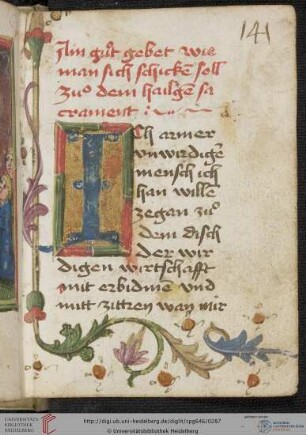 141
Ain gut gebet wie
man sich schicken soll
Zuo dem hailgen sa
crament :
Ich armer
vnwirdiger
mensch ich
han willen
zegan zuo
dem disch
der wir
digen wirtschafft
mit erbidme vnd
mitt zittren wan mir
UNIVERSITÄTS-
BIBLIOTHEK
HEIDELBERG
http://digi.ub.uni-heidelberg.de/diglit/cpg646/0287
© Universitätsbibliothek Heidelberg